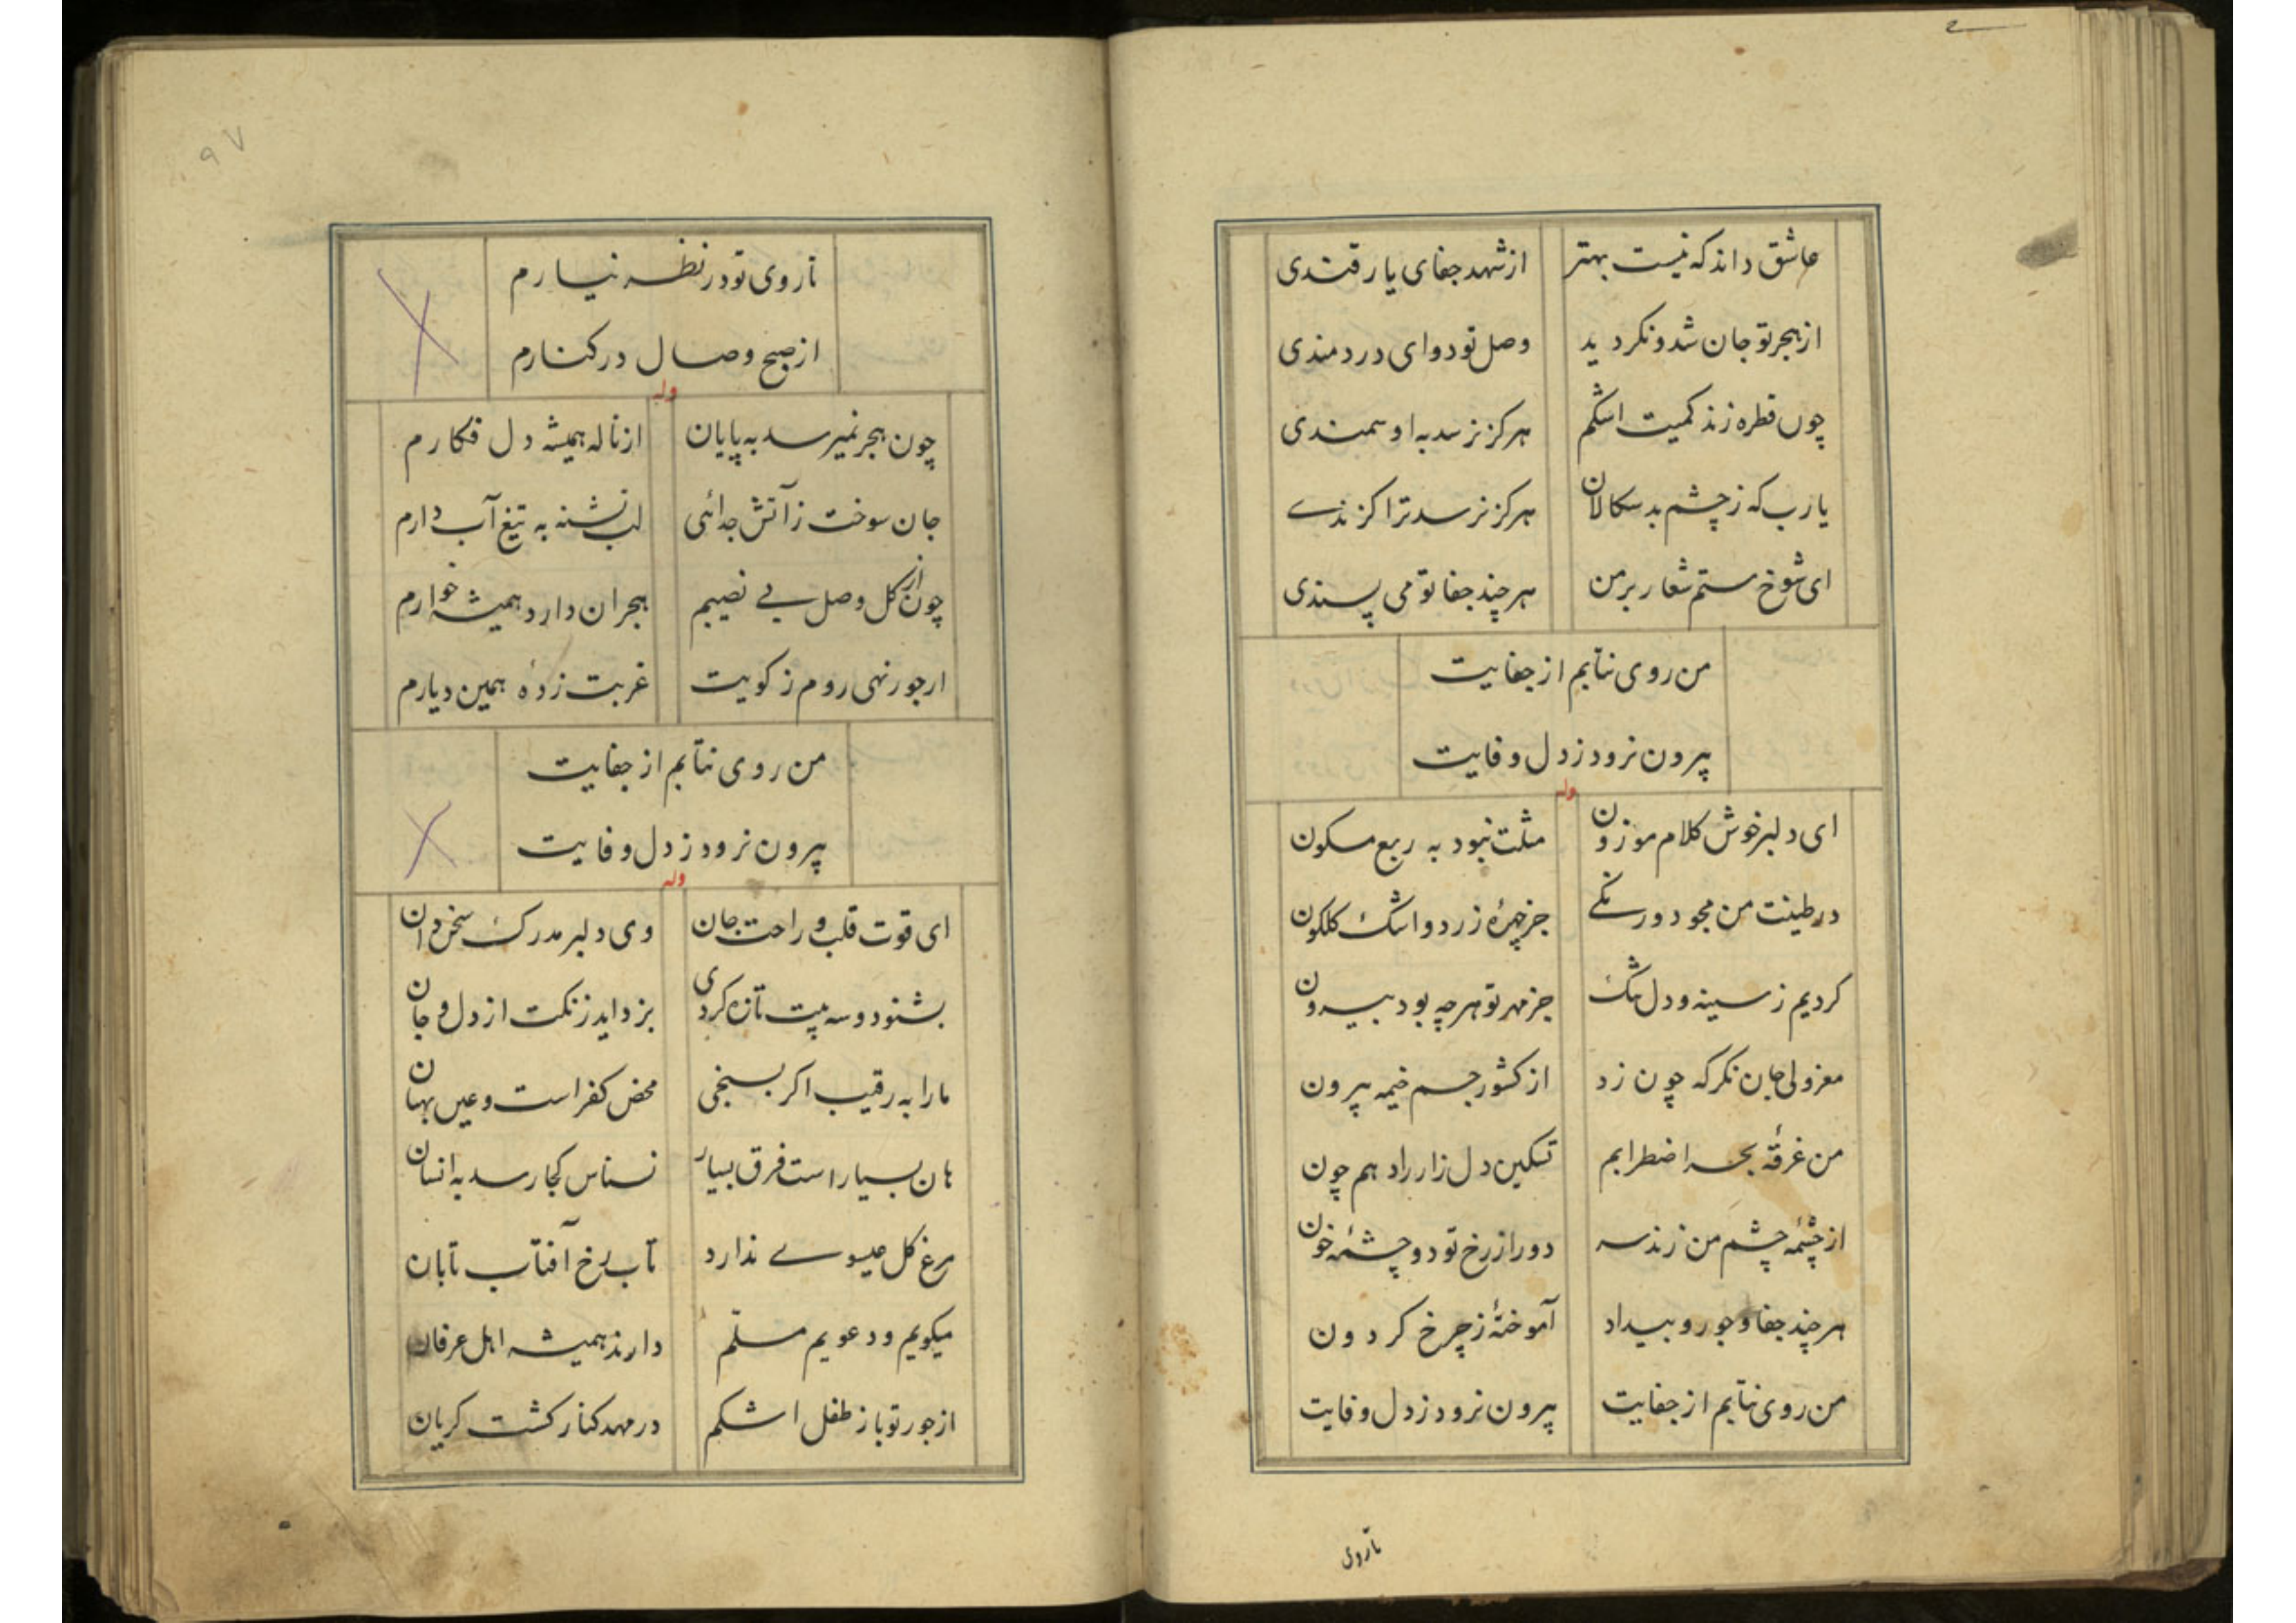 عاشق داند که نیست بهتر از شهد جفای یار قندی
از هجر تو جان شد و نکردید وصل تو دوای دردمندی
چون قطره زند کمیت اشکم هرکز نرسد به او سمندی
یارب که ز چشم بدسکالان هرکز نرسد ترا کزندے
ای شوخ ستم شعار بر من هر چند جفا تو می پسندی
من روی نتابم از جفایت
بیرون نرود ز دل وفایت
وله
ای دلبر خوش کلام موزون مثلت نبود به ربع مسکون
در طینت من مجو دورنکے جز چهرهٔ زرد و اشک کلکون
کردیم ز سینه و دل تنک جز مهر تو هرچه بود بیرون
معزولی جان نکر که چون زد از کشور جسم خیمه بیرون
من غرقهٔ بحر اضطرابم تسکین دل زار را دهم چون
از چشمهٔ چشم من زند سر دور از رخ تو دو چشمهٔ خون
هر چند جفا و جور و بیداد آموختهٔ ز چرخ کردون
من روی نتابم از جفایت بیرون نرود ز دل وفایت
تا روی
۹۷
تا روی تو در نظر نیارم
از صبح وصال در کنارم
وله
چون هجر نمیرسد به پایان از ناله همیشه دل فکارم
جان سوخت ز آتش جدائی لب تشنه به تیغ آب دارم
چون از کل وصل بے نصیبم هجران دارد همیشه خوارم
ار جور نهی روم ز کویت غربت زدهٔ همین دیارم
من روی نتابم از جفایت
بیرون نرود ز دل وفایت
وله
ای قوت قلب و راحت جان وی دلبر مدرک سخن دان
بشنو دو سه بیت تازه کردی بزداید زنکت از دل و جان
ما را به رقیب اکر بسنجی محض کفر است و عین بهتان
هان بسیار است فرق بسیار نسناس کجا رسد به انسان
مرغ کل عیسوے ندارد تاب رخ آفتاب تابان
میکویم و دعویم مسلّم دارند همیشه اهل عرفان
از جور تو باز طفل اشکم در مهد کنار کشت کریان